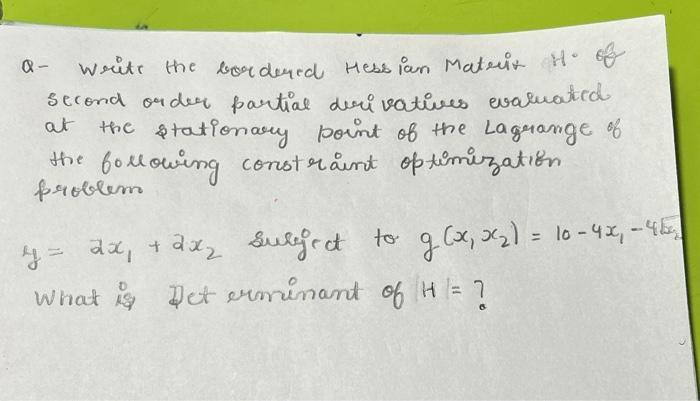 Q- Write the bordered Hessian Matrix H. of
second order partial derivatives evaluated
at the stationary point of the Lagrange of
the following constraint optimization
problem
y = 2x₁ + 2x₂ subject to g(x₁x₂) = 10 - 4x₁ - 4√x₂
What is Determinant of |H| = ?